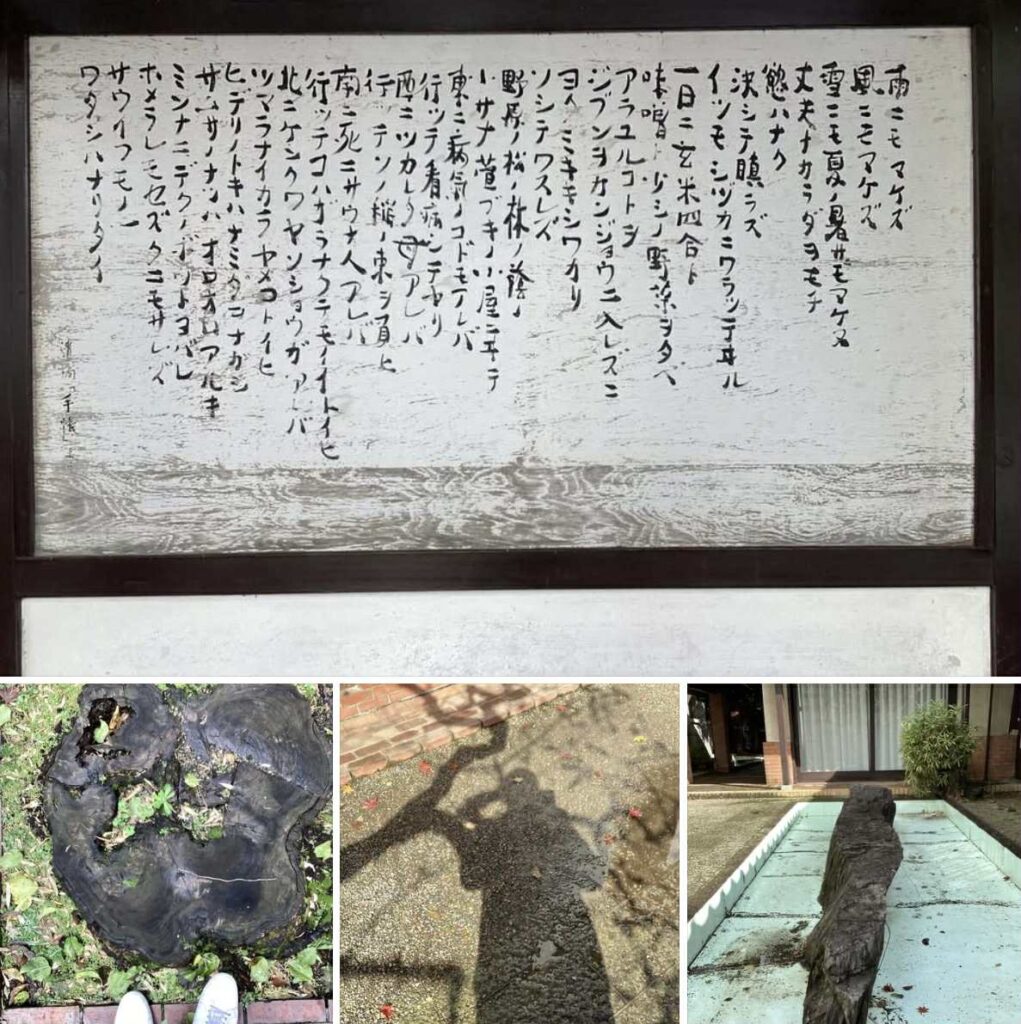 雨ニモマケズ
風ニモマケズ
雪ニモ夏ノ暑サニモマケヌ
丈夫ナカラダヲモチ
慾ハナク
決シテ瞋ラズ
イツモシヅカニワラッテヰル
一日ニ玄米四合ト
味噌ト少シノ野菜ヲタベ
アラユルコトヲ
ジブンヲカンジョウニ入レズニ
ヨクミキキシワカリ
ソシテワスレズ
野原ノ松ノ林ノ蔭ノ
小サナ萓ブキノ小屋ニヰテ
東ニ病気ノコドモアレバ
行ッテ看病シテヤリ
西ニツカレタ母アレバ
行ッテソノ稲ノ束ヲ負ヒ
南ニ死ニサウナ人アレバ
行ッテコハガラナクテモイイトイヒ
北ニケンクヮヤソショウガアレバ
ツマラナイカラヤメロトイヒ
ヒデリノトキハナミダヲナガシ
サムサノナツハオロオロアルキ
ミンナニデクノボウトヨバレ
ホメラレモセズクニモサレズ
サウイフモノニ
ワタシハナリタイ
手帳